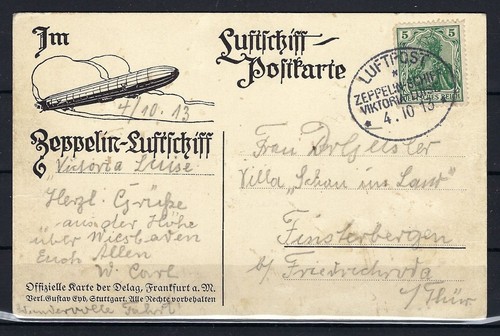 Im
Luftschiff-
Postkarte
5 5
LUFTPOST
ZEPPELIN
VIKTORIA
4.10.13
4/10.13
Zeppelin-Luftschiff
„Victoria Luise"
Herzl. Grüße
aus der Höhe
über Wiesbaden
Euch Allen
W. Carl
Offizielle Karte der Delag, Frankfurt a. M.
Verl. Gustav Eyb, Stuttgart. Alle Rechte vorbehalten
Wundervolle Fahrt!
Frau
Villa „Schau ins Land"
Finsterbergen
b/ Friedrichroda
i/Thür